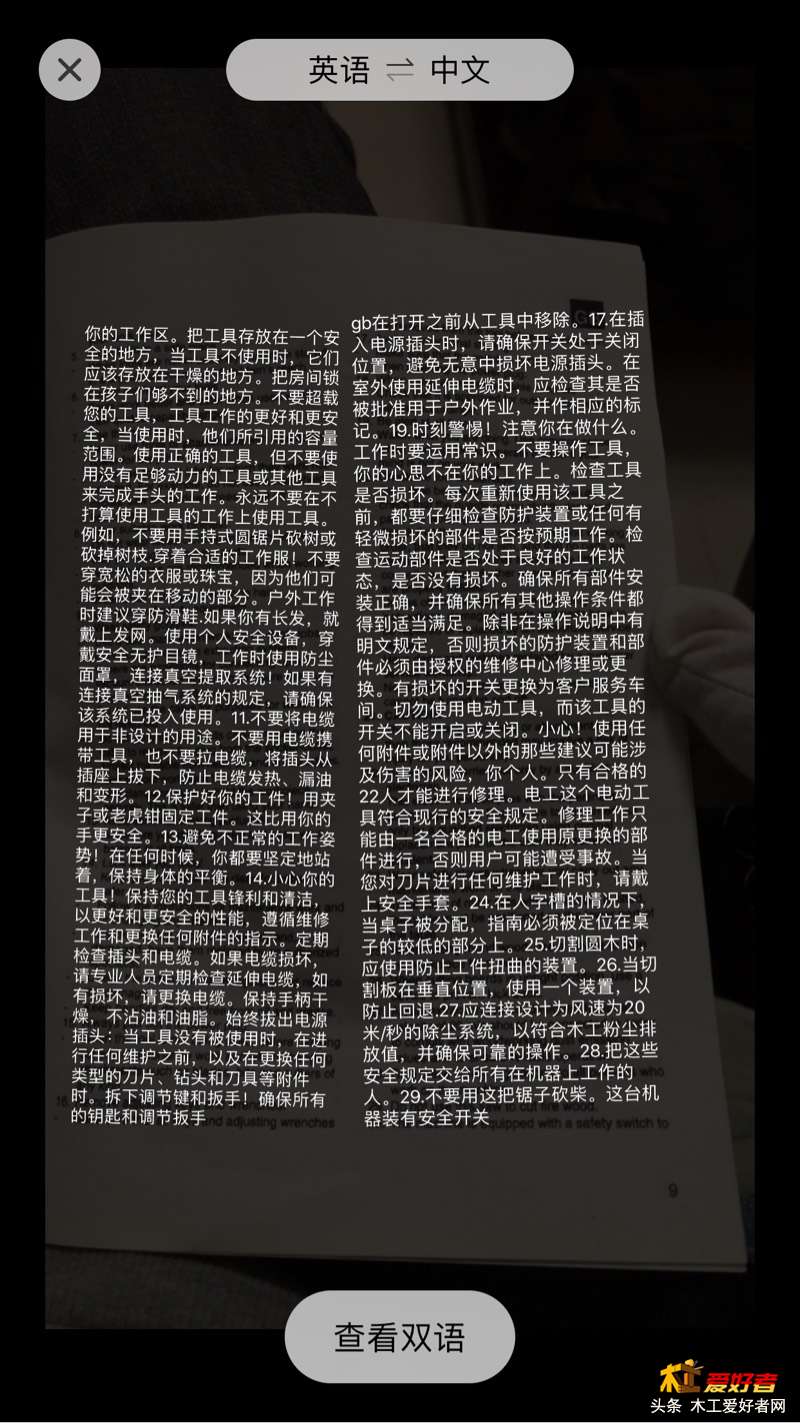 英语 ⇌ 中文
你的工作区。把工具存放在一个安
全的地方，当工具不使用时，它们
应该存放在干燥的地方。把房间锁
在孩子们够不到的地方。不要超载
您的工具，工具工作的更好和更安
全，当使用时，他们所引用的容量
范围。使用正确的工具，但不要使
用没有足够动力的工具或其他工具
来完成手头的工作。永远不要在不
打算使用工具的工作上使用工具。
例如，不要用手持式圆锯片砍树或
砍掉树枝.穿着合适的工作服！不要
穿宽松的衣服或珠宝，因为他们可
能会被夹在移动的部分。户外工作
时建议穿防滑鞋.如果你有长发，就
戴上发网。使用个人安全设备，穿
戴安全无护目镜，工作时使用防尘
面罩，连接真空提取系统！如果有
连接真空抽气系统的规定，请确保
该系统已投入使用。11.不要将电缆
用于非设计的用途。不要用电缆携
带工具，也不要拉电缆，将插头从
插座上拔下，防止电缆发热、漏油
和变形。12.保护好你的工件！用夹
子或老虎钳固定工件。这比用你的
手更安全。13.避免不正常的工作姿
势！在任何时候，你都要坚定地站
着，保持身体的平衡。14.小心你的
工具！保持您的工具锋利和清洁，
以更好和更安全的性能，遵循维修
工作和更换任何附件的指示。定期
检查插头和电缆。如果电缆损坏，
请专业人员定期检查延伸电缆，如
有损坏，请更换电缆。保持手柄干
燥，不沾油和油脂。始终拔出电源
插头：当工具没有被使用时，在进
行任何维护之前，以及在更换任何
类型的刀片、钻头和刀具等附件
时。拆下调节键和扳手！确保所有
的钥匙和调节扳手
and adjusting wrenches
gb在打开之前从工具中移除。17.在插
入电源插头时，请确保开关处于关闭
位置，避免无意中损坏电源插头。在
室外使用延伸电缆时，应检查其是否
被批准用于户外作业，并作相应的标
记。19.时刻警惕！注意你在做什么。
工作时要运用常识。不要操作工具，
你的心思不在你的工作上。检查工具
是否损坏。每次重新使用该工具之
前，都要仔细检查防护装置或任何有
轻微损坏的部件是否按预期工作。检
查运动部件是否处于良好的工作状
态，是否没有损坏。确保所有部件安
装正确，并确保所有其他操作条件都
得到适当满足。除非在操作说明中有
明文规定，否则损坏的防护装置和部
件必须由授权的维修中心修理或更
换。有损坏的开关更换为客户服务车
间。切勿使用电动工具，而该工具的
开关不能开启或关闭。小心！使用任
何附件或附件以外的那些建议可能涉
及伤害的风险，你个人。只有合格的
22人才能进行修理。电工这个电动工
具符合现行的安全规定。修理工作只
能由一名合格的电工使用原更换的部
件进行，否则用户可能遭受事故。当
您对刀片进行任何维护工作时，请戴
上安全手套。24.在人字槽的情况下，
当桌子被分配，指南必须被定位在桌
子的较低的部分上。25.切割圆木时，
应使用防止工件扭曲的装置。26.当切
割板在垂直位置，使用一个装置，以
防止回退.27.应连接设计为风速为20
米/秒的除尘系统，以符合木工粉尘排
放值，并确保可靠的操作。28.把这些
安全规定交给所有在机器上工作的
人。29.不要用这把锯子砍柴。这台机
器装有安全开关
to cut fire wood.
equipped with a safety switch to
9
查看双语
木工爱好者
头条 木工爱好者网